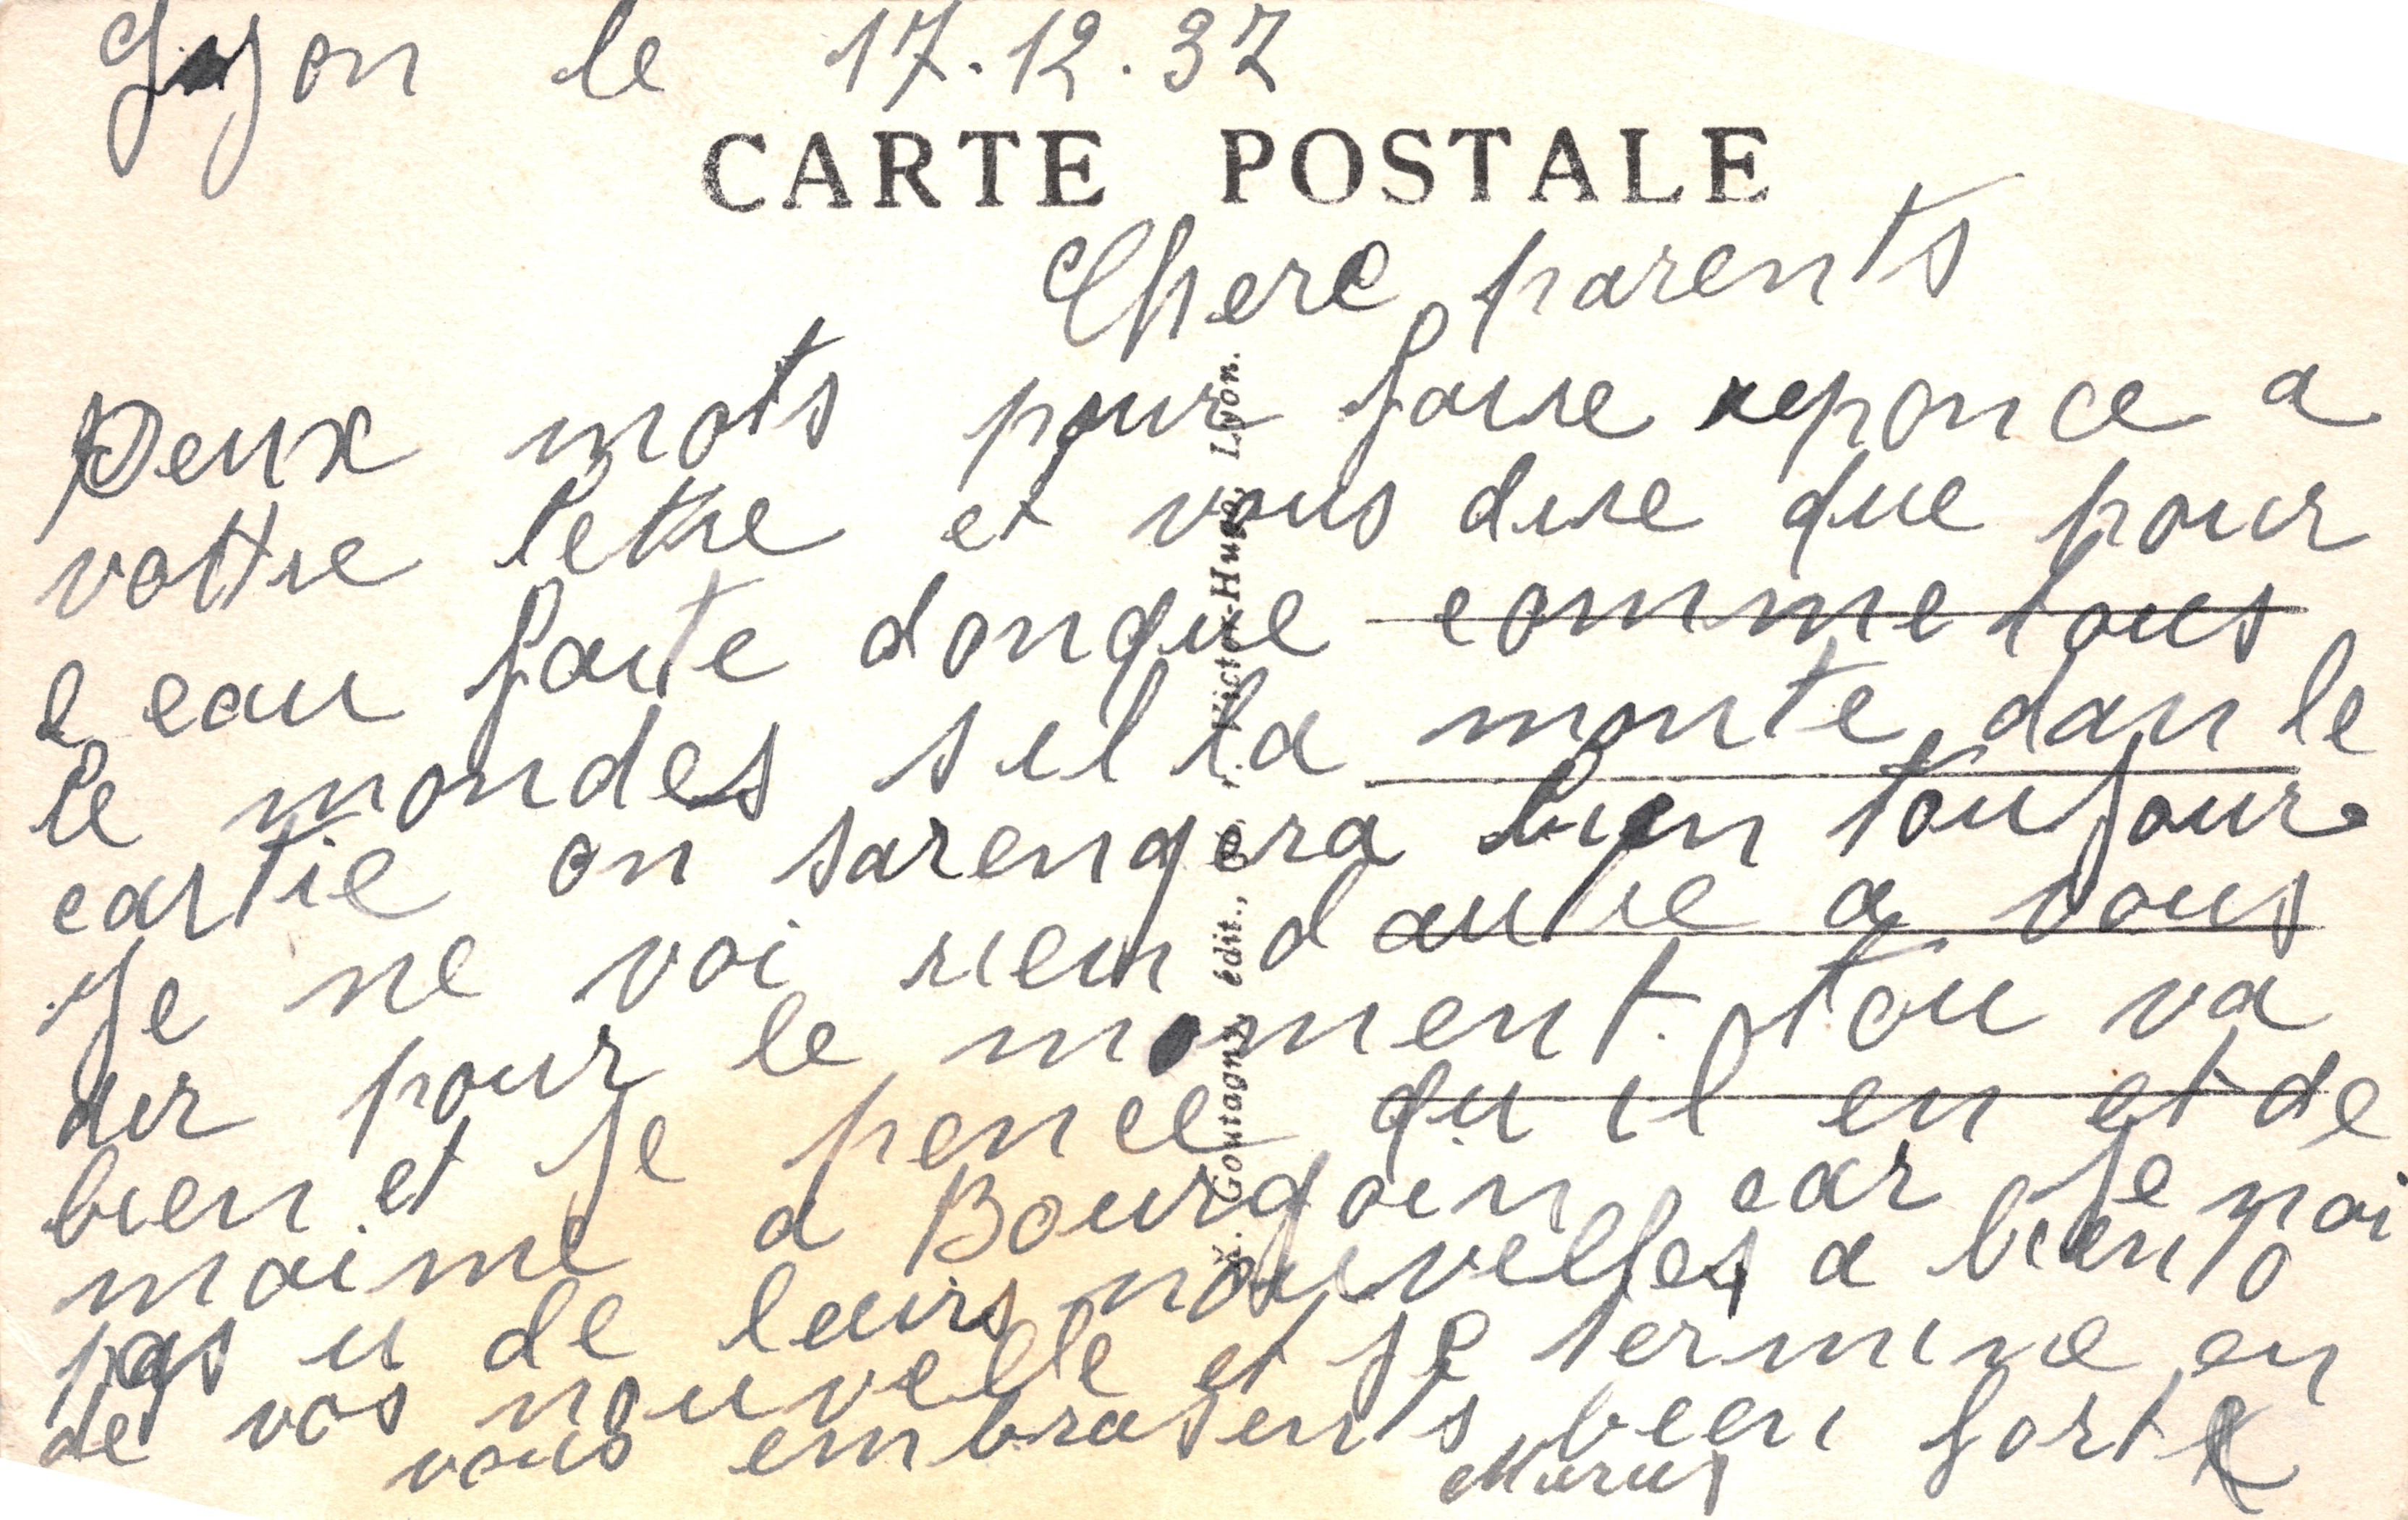 Lyon le 17.12.37
CARTE POSTALE
Chere parents
Deux mots pour faire reponce a
vottre lettre et vous dire que pour
l eau faite donque comme tous
le mondes sil la monte dan le
cartie on sarengera bien toujour
Je ne voi rien dautre a vous
dir pour le moment. tou va
bien et je pence qu il en et de
maime a Bourgoin car je nai
pas u de leurs nouvelles a biento
de vos nouvelle et je termine en
vous embrasents bien fort
Marius
X. Goutagny, édit., Victor-Hugo, Lyon.